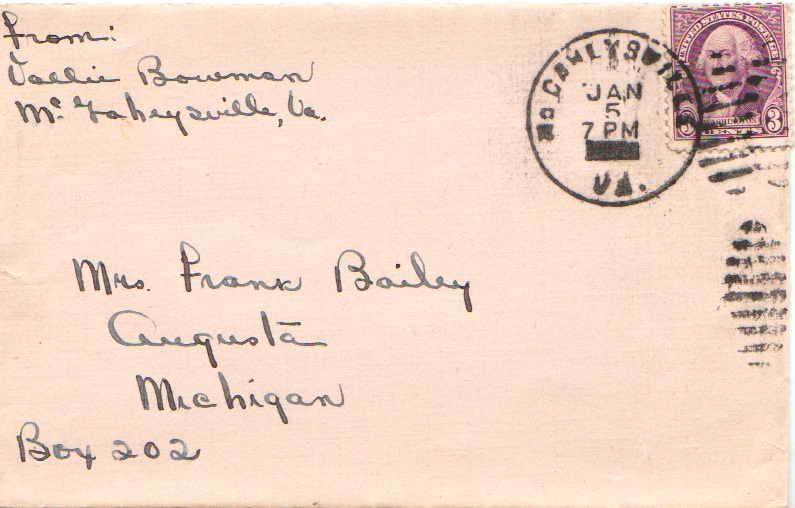 From:
Vallie Bowman
Mc Gaheysville, Va.
McGAHEYSVILLE
JAN
5
7 PM
VA.
UNITED STATES POSTAGE
3 WASHINGTON 3
CENTS
Mrs. Frank Bailey
Augusta
Michigan
Box 202